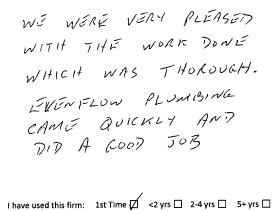 WE WERE VERY PLEASED
WITH THE WORK DONE
WHICH WAS THOROUGH.
EVENFLOW PLUMBING
CAME QUICKLY AND
DID A GOOD JOB
I have used this firm: 1st Time ☑ <2 yrs ☐ 2-4 yrs ☐ 5+ yrs ☐